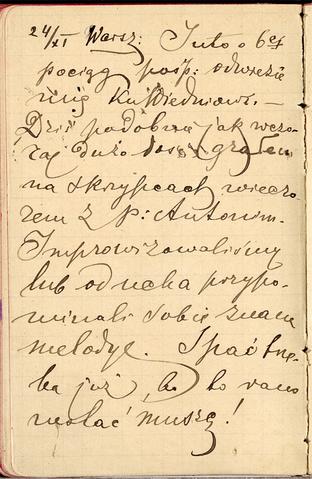 24/XI Warsz: Jutro o 6ej
pociąg posp: odwiezie
mię ku Wiedniowi. –
Dziś podobnie jak wczo-
raj dużo dosyć grałem
na skrzypcach wieczo-
rem z p: Antonim.
Improwizowaliśmy
lub od ucha przypo-
minali sobie znane
melodye. Spać trze-
ba już, bo to rano
wstać muszę!